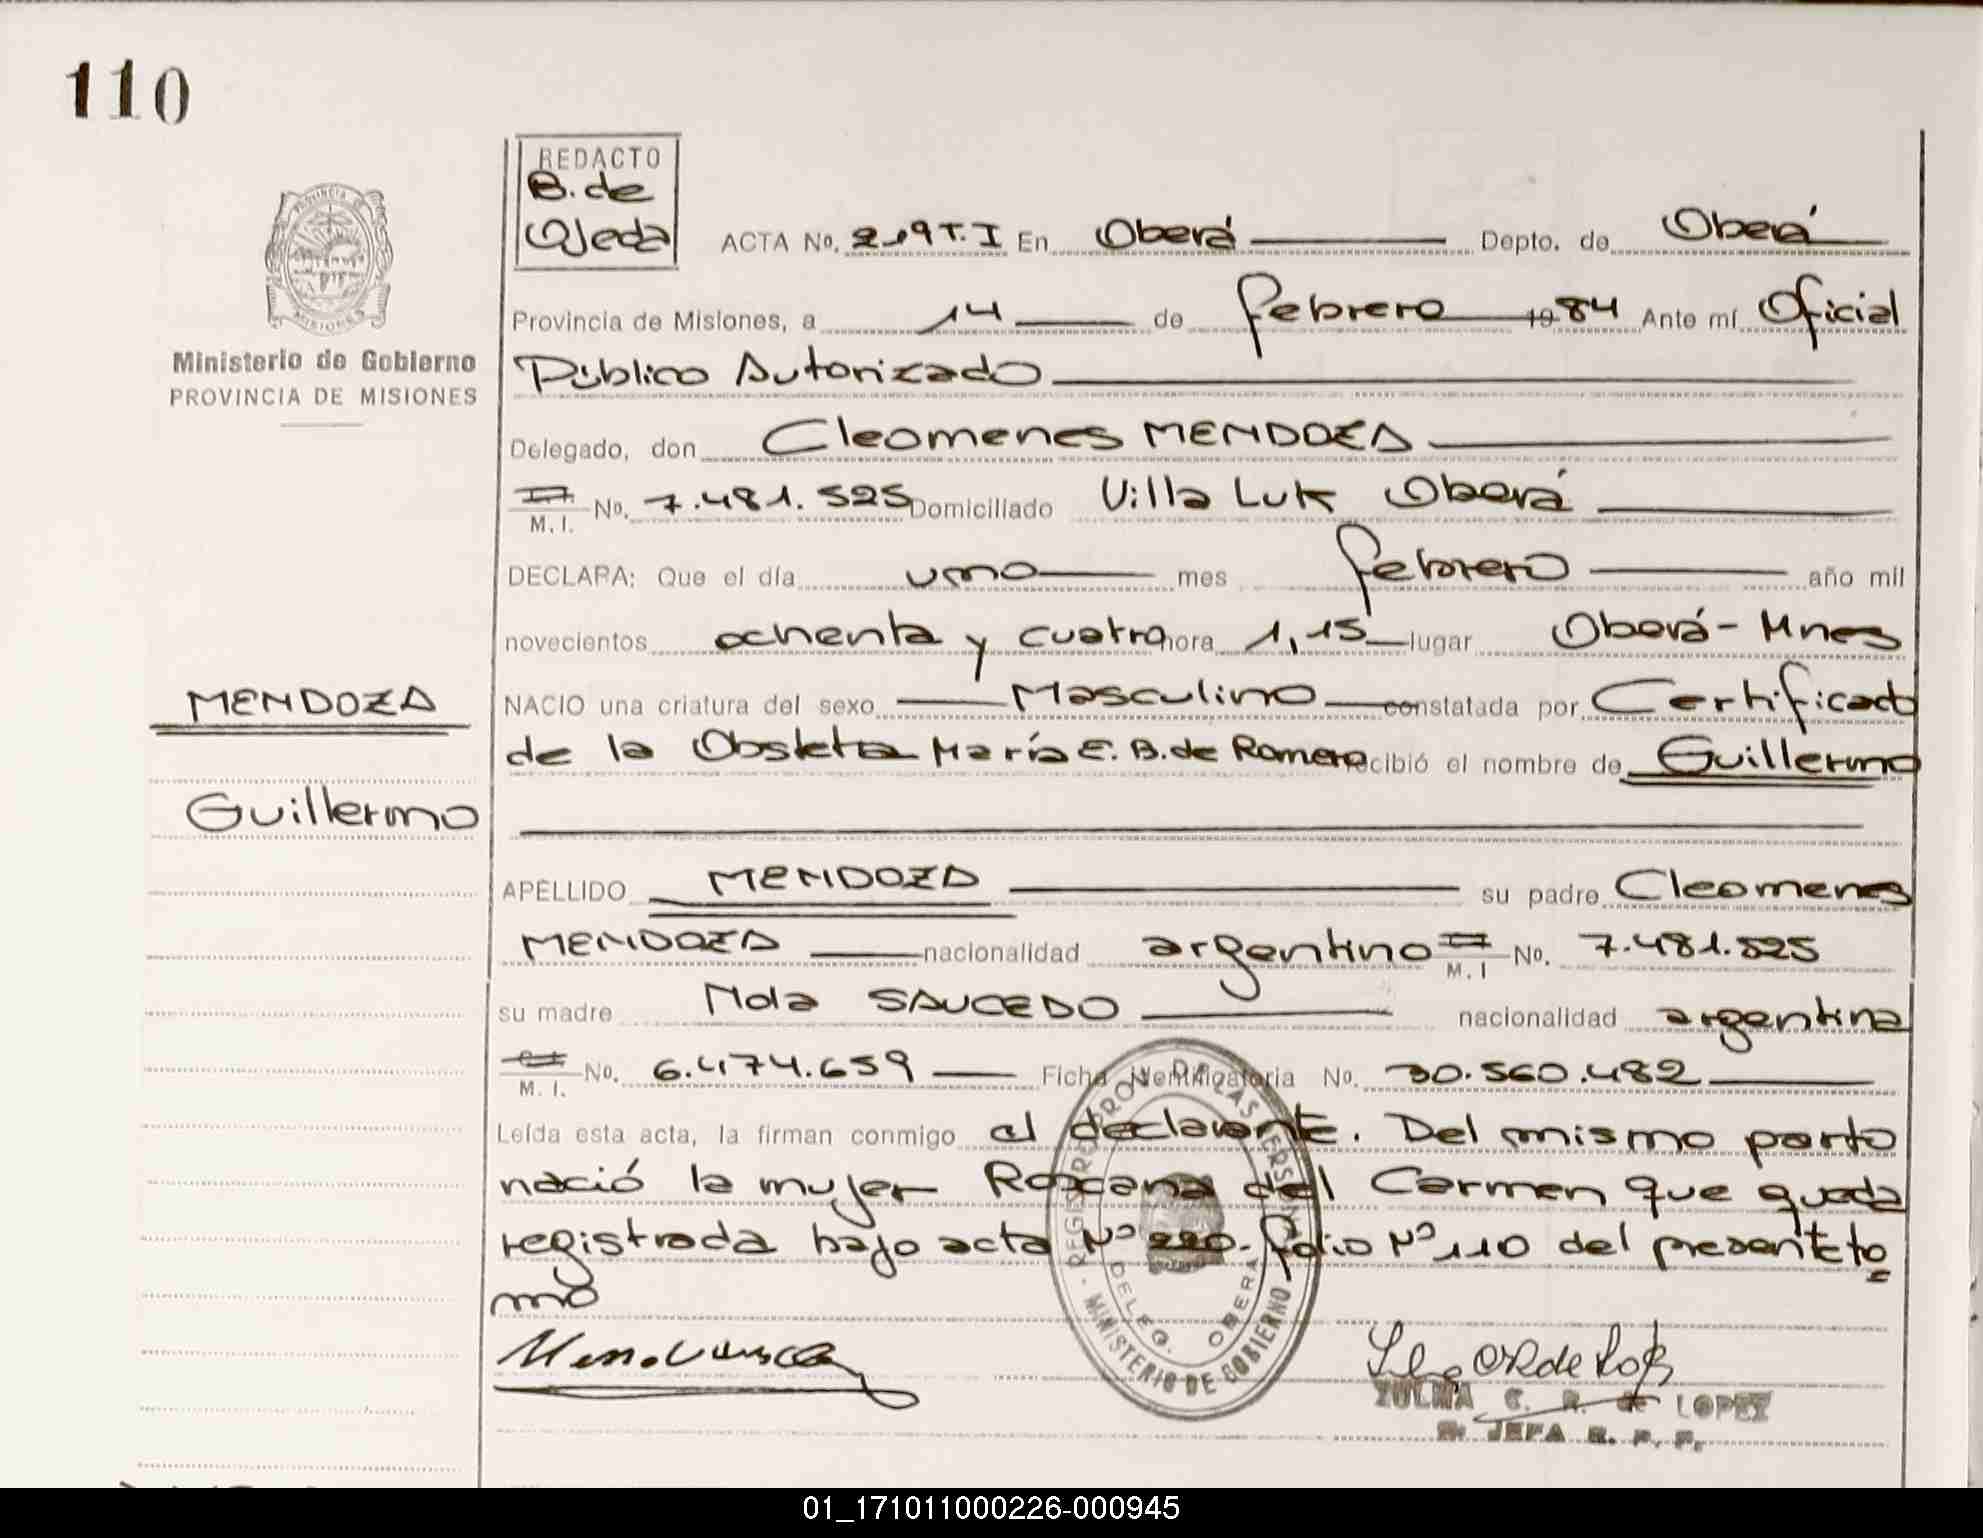 110
REDACTO
B. de
Ojeda
ACTA No. 219 T. I En Oberá Depto. de Oberá
Provincia de Misiones, a 14 de febrero 1984 Ante mí Oficial
Público Autorizado
Delegado, don Cleomenes MENDOZA
M. I. No. 7.481.525 Domiciliado Villa Luk Oberá
DECLARA: Que el día uno mes febrero año mil
novecientos ochenta y cuatro hora 1,15 lugar Oberá - Mnes
NACIO una criatura del sexo Masculino constatada por Certificado
de la Obstetra María E. B. de Romero recibió el nombre de Guillermo
APELLIDO MENDOZA su padre Cleomenes
MENDOZA nacionalidad argentino M. I No. 7.481.525
su madre Nola SAUCEDO nacionalidad argentina
M. I. No. 6.474.659 Ficha Identificatoria No. 30.560.482
Leída esta acta, la firman conmigo el declarante. Del mismo parto
nació la mujer Roxana del Carmen que queda
registrada bajo acta Nº 220. folio Nº 110 del presente to
mo
PROVINCIA DE MISIONES
Ministerio de Gobierno
PROVINCIA DE MISIONES
MENDOZA
Guillermo
REGISTRO PROV. DE LAS PERSONAS
DELEG. OBERA
MINISTERIO DE GOBIERNO
ZULMA C. R. de LOPEZ
JEFA R. P. P.
01_171011000226-000945